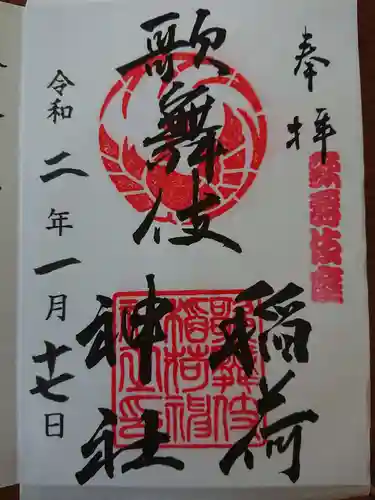 奉拝
歌舞伎座
歌舞伎
稲荷
神社
令和二年一月十七日